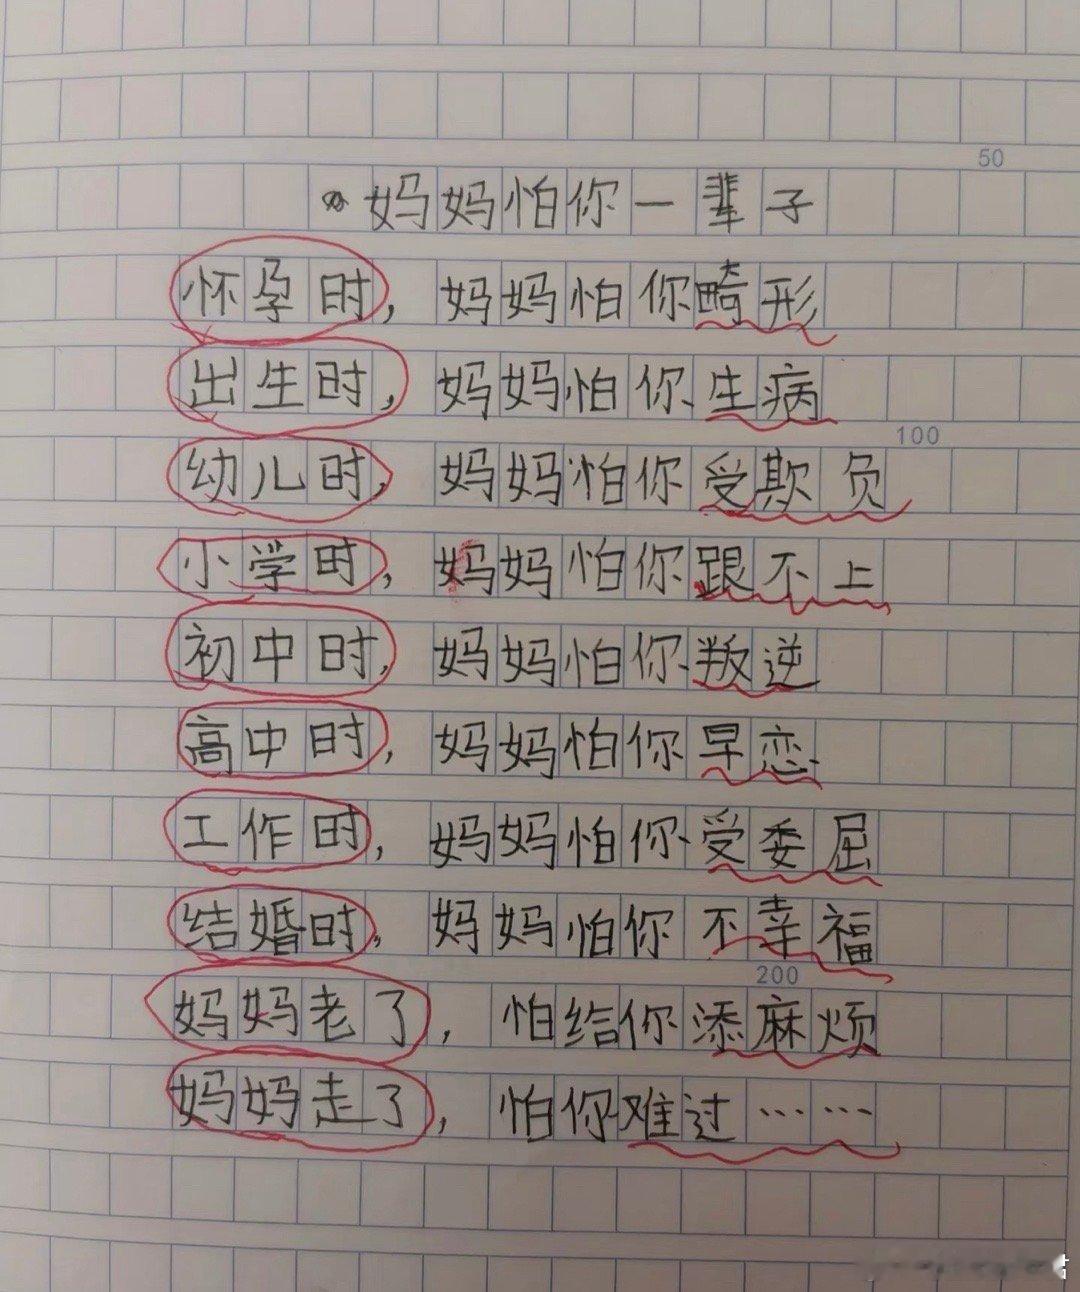 50
妈妈怕你一辈子
怀孕时，妈妈怕你畸形
出生时，妈妈怕你生病
100
幼儿时，妈妈怕你受欺负
小学时，妈妈怕你跟不上
初中时，妈妈怕你叛逆
高中时，妈妈怕你早恋
工作时，妈妈怕你受委屈
结婚时，妈妈怕你不幸福
200
妈妈老了，怕给你添麻烦
妈妈走了，怕你难过……